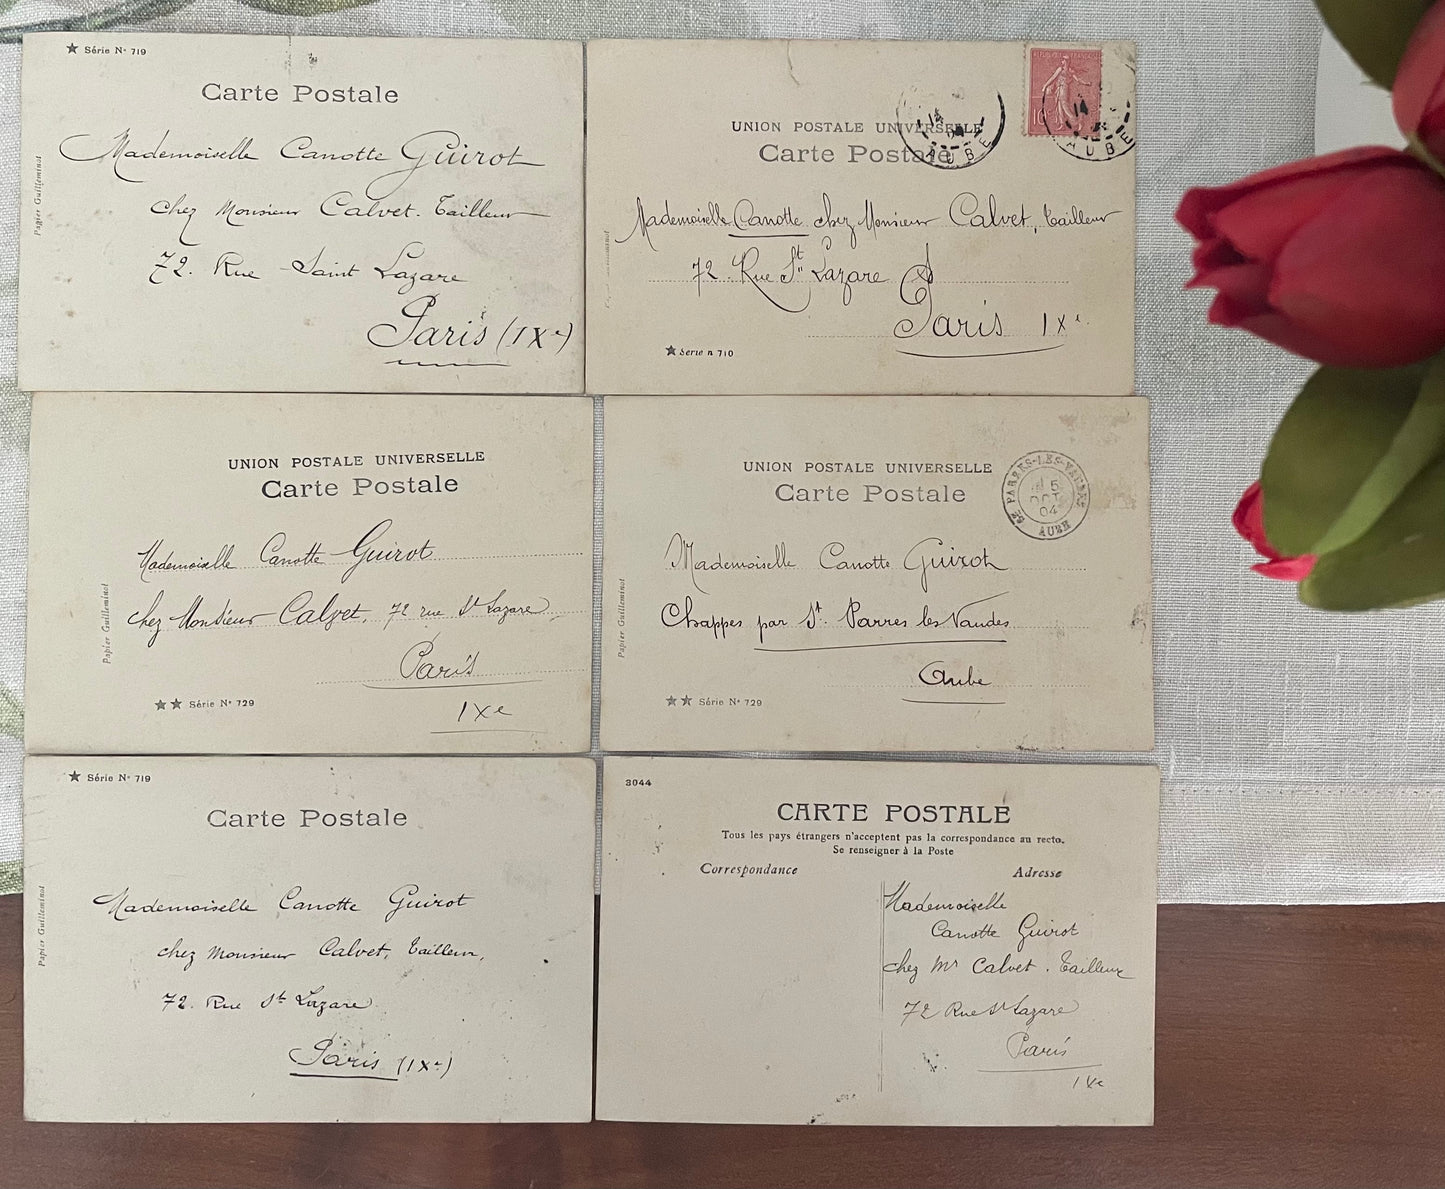 ★ Série Nº 719
Carte Postale
Mademoiselle Canotte Guirot
chez Monsieur Calvet. Tailleur
72. Rue Saint Lazare
Paris (IXe)
Papier Guilleminot
14
04
AUBE
14
AUBE
10
UNION POSTALE UNIVERSELLE
Carte Postale
Mademoiselle Canotte chez Monsieur Calvet, Tailleur
72. Rue St Lazare
Paris IXe.
★ Série n 710
UNION POSTALE UNIVERSELLE
Carte Postale
Mademoiselle Canotte Guirot
chez Monsieur Calvet, 72 rue St Lazare
Paris
IXe
Papier Guilleminot
★★ Série Nº 729
UNION POSTALE UNIVERSELLE
Carte Postale
ST PARRES-LES-VAUDES
5
OCT
04
AUBE
Mademoiselle Canotte Guirot
Chappes par St. Parres les Vaudes
Aube
Papier Guilleminot
★★ Série Nº 729
★ Série Nº 719
Carte Postale
Mademoiselle Canotte Guirot
chez Monsieur Calvet, Tailleur,
72. Rue St Lazare
Paris (IXe)
Papier Guilleminot
3044
CARTE POSTALE
Tous les pays étrangers n'acceptent pas la correspondance au recto.
Se renseigner à la Poste
Correspondance
Adresse
Mademoiselle
Canotte Guirot
chez Mr Calvet. Tailleur
72 Rue St Lazare
Paris
IXe